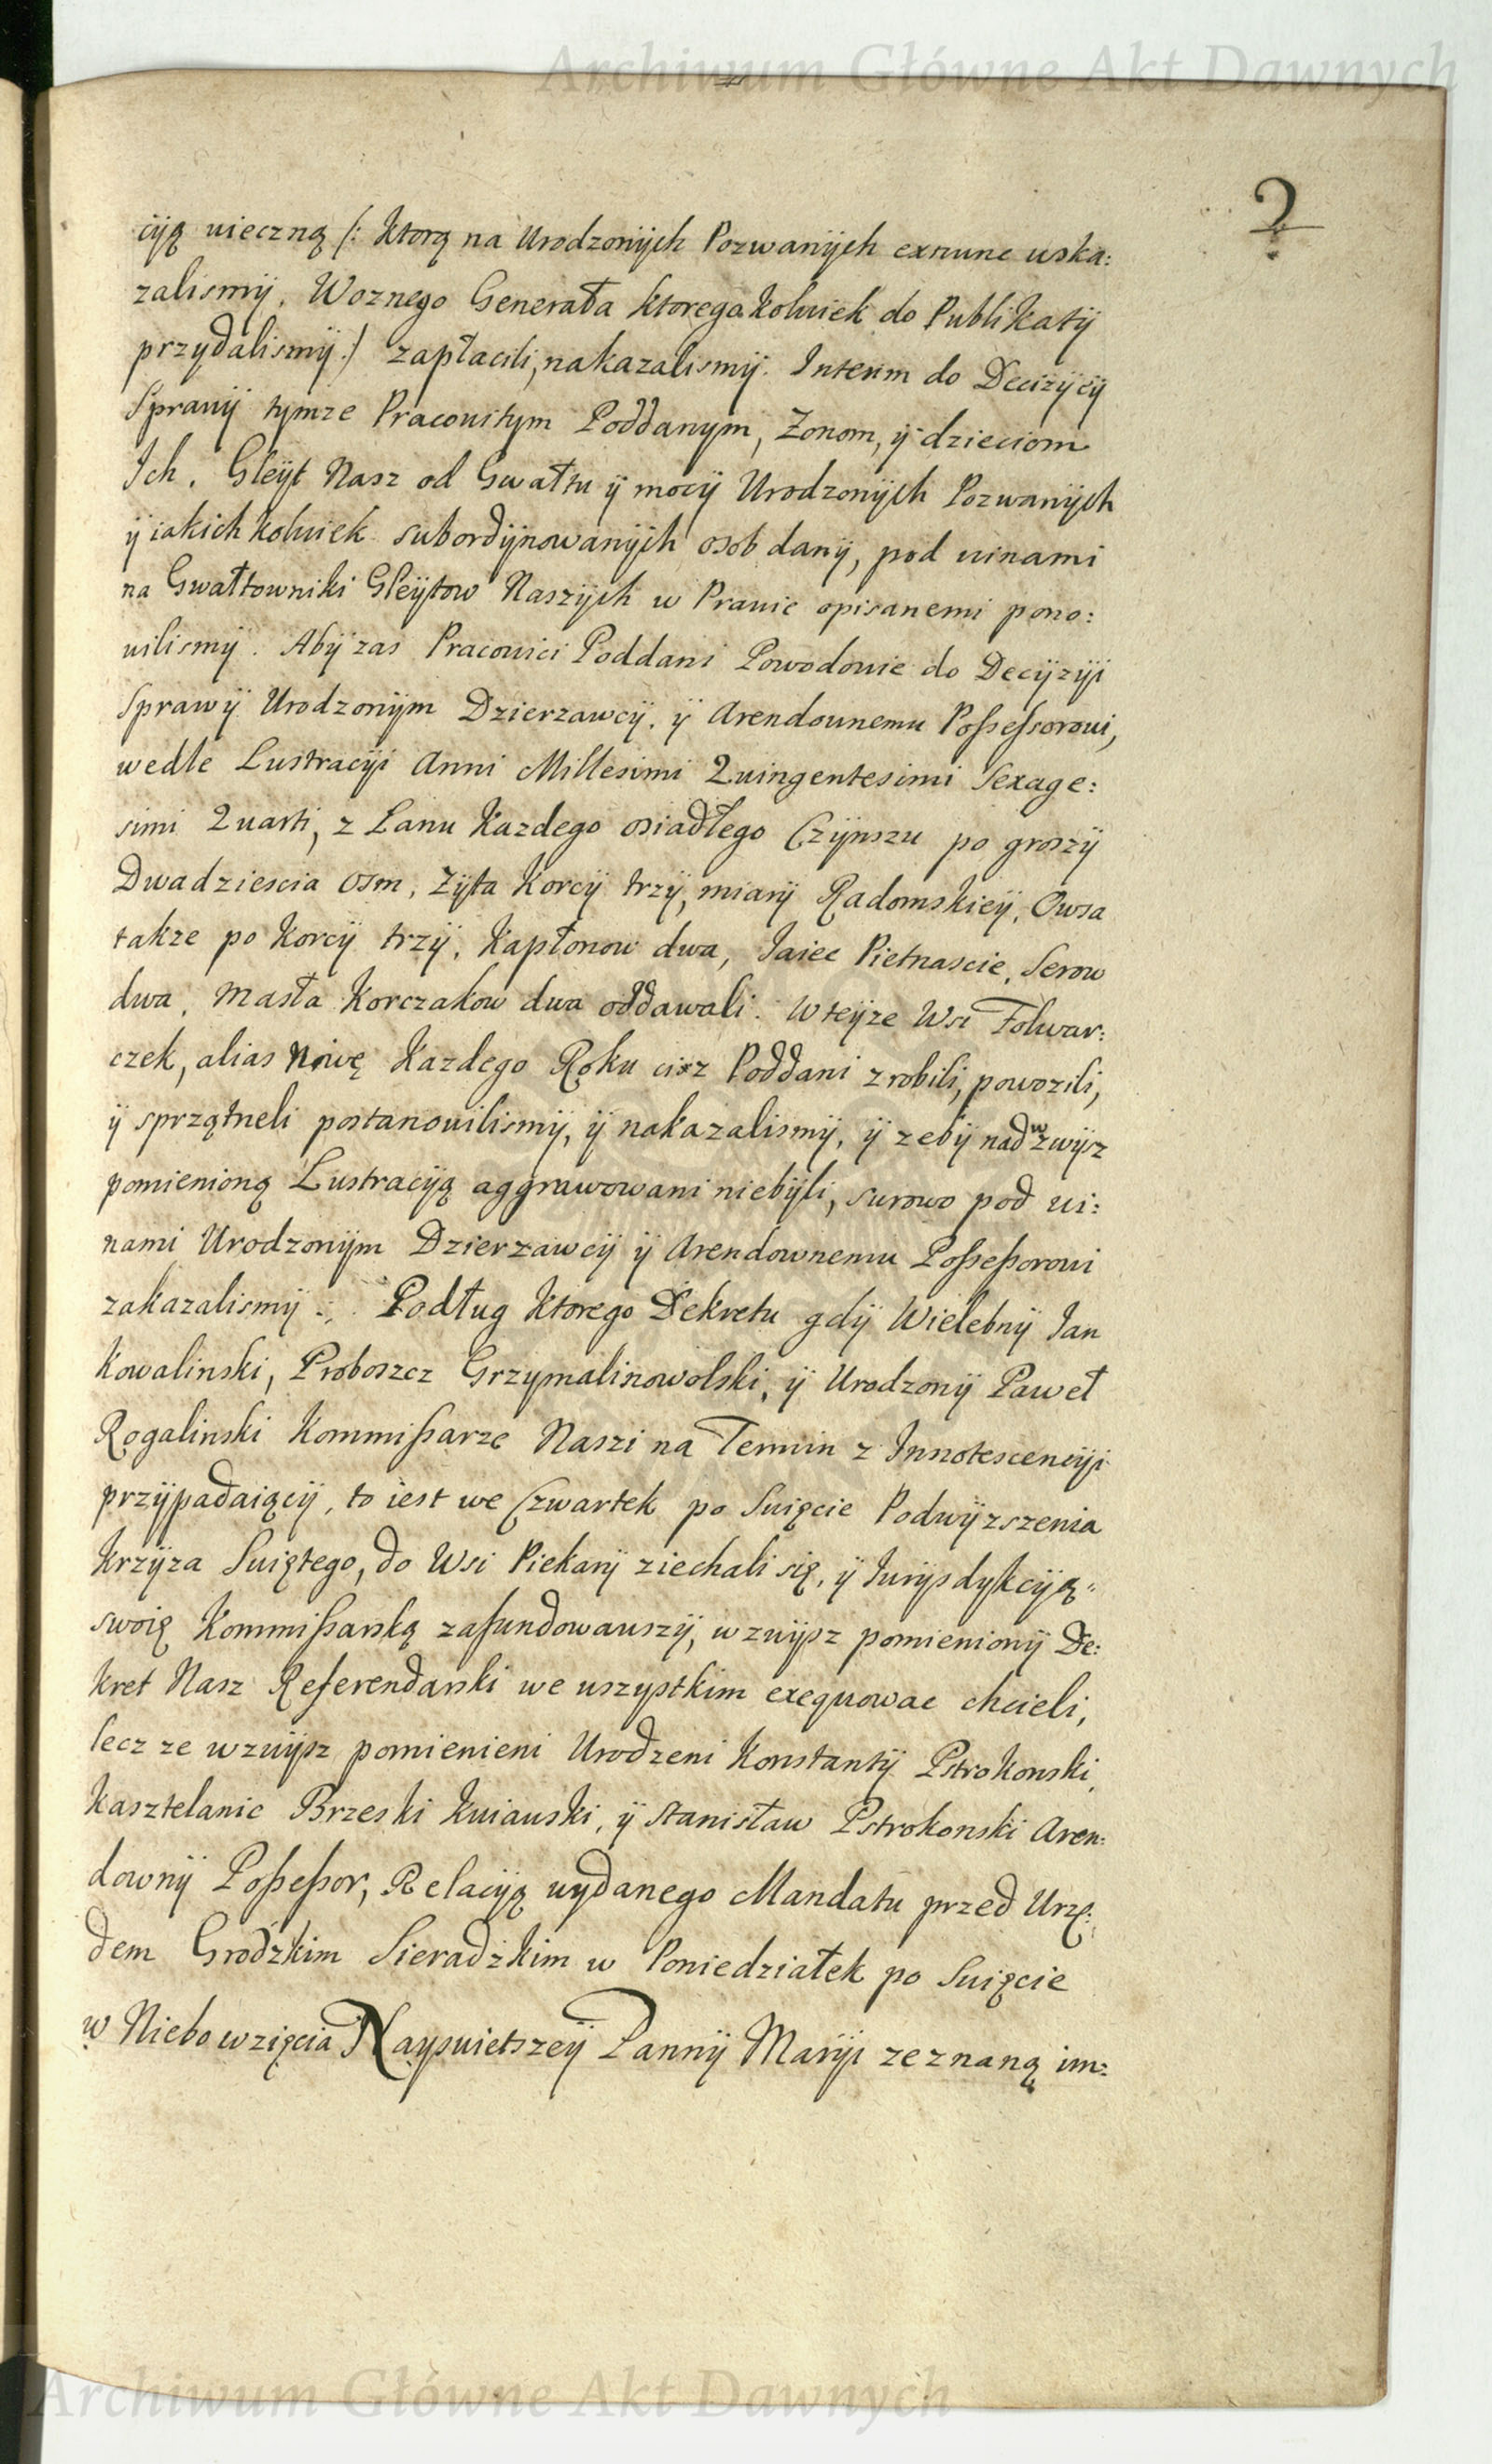 Archiwum Główne Akt Dawnych
2
cÿą wieczną /: Ktorą na Urodzonÿch Pozwanÿch exnunc wska:
zalismÿ, Woznego Generała ktoregokolwiek do Publikatÿ
przydalismÿ :/ zapłacili, nakazalismÿ. Interim do Decizÿcÿ
Sprawÿ tymze Pracowitym Poddanym, Zonom, ÿ dzieciom
Ich, Gleÿt Nasz od Gwałtu ÿ mocÿ Urodzonÿch Pozwanÿch
ÿ iakichkolwiek subordÿnowanÿch osob danÿ, pod winami
na Gwałtowniki Gleÿtow Naszÿch w Prawie opisanemi pono:
wilismÿ. Abÿ zas Pracowici Poddani Powodowie do Decÿzÿi
Sprawÿ Urodzonÿm Dzierzawcÿ, ÿ Arendownemu Possessorowi,
wedle Lustracÿi Anni Millesimi Quingentesimi Sexage:
simi Quarti, z Lanu Kazdego osiadłego Czÿnszu po groszÿ
Dwadziescia osm, Zÿta Korcÿ trzÿ, miarÿ Radomskieÿ, Owsa
takze po Korcÿ trzÿ, Kapłonow dwa, Iaiec Pietnascie, Serow
dwa, Masła Korczakow dwa oddawali. W teÿze Wsi Folwar:
czek, alias Niwę Kazdego Roku cisz Poddani zrobili, powozili,
ÿ sprzątneli postanowilismÿ, ÿ nakazalismÿ, ÿ zebÿ nad wzwÿsz
pomienioną Lustracÿą aggrawowani niebÿli, surowo pod wi:
nami Urodzonÿm Dzierzawcÿ ÿ Arendownemu Possessorowi
zakazalismÿ. Podług Ktorego Dekretu gdÿ Wielebnÿ Ian
Kowalinski, Proboszcz Grzymalinowolski, ÿ Urodzonÿ Paweł
Rogalinski Kommissarze Naszi na Termin z Innotescencÿi
przÿpadaiącÿ, to iest we Czwartek po Swięcie Podwÿzszenia
Krzÿza Swiętego, do Wsi Piekarÿ ziechali się, ÿ Iurÿsdykcÿą
swoię Kommissarską zafundowawszÿ, wzwÿsz pomienionÿ De:
kret Nasz Referendarski we wszystkim exequowac chcieli,
lecz ze wzwÿsz pomienieni Urodzeni Konstantÿ Pstrokonski,
Kasztelanic Brzeski Kuiawski, ÿ Stanisław Pstrokonski Aren:
downÿ Possessor, Relacÿą wydanego Mandatu przed Urzę:
dem Grodzkim Sieradzkim w Poniedziałek po Swięcie
w Niebo wzięcia Nayswietszeÿ Pannÿ Marÿi zeznaną im:
Archiwum Główne Akt Dawnych